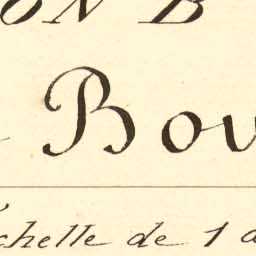 ON B
Bou
chelle de 1 à